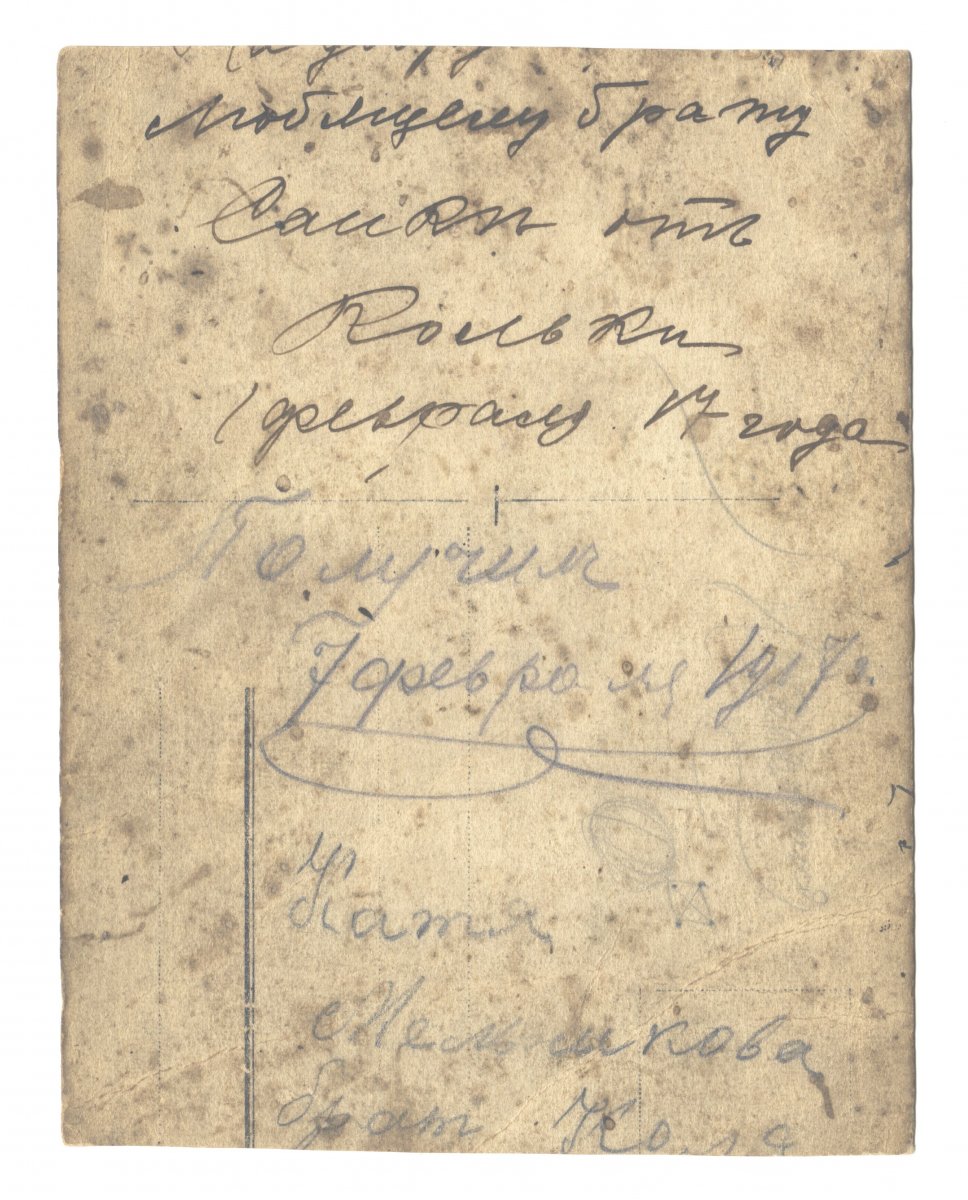 любящему брату
Саньки отъ
Кольки
1 февраля 17 года
Получил
7 февраля 1917 г.
Катя
Мельникова
брат Коля